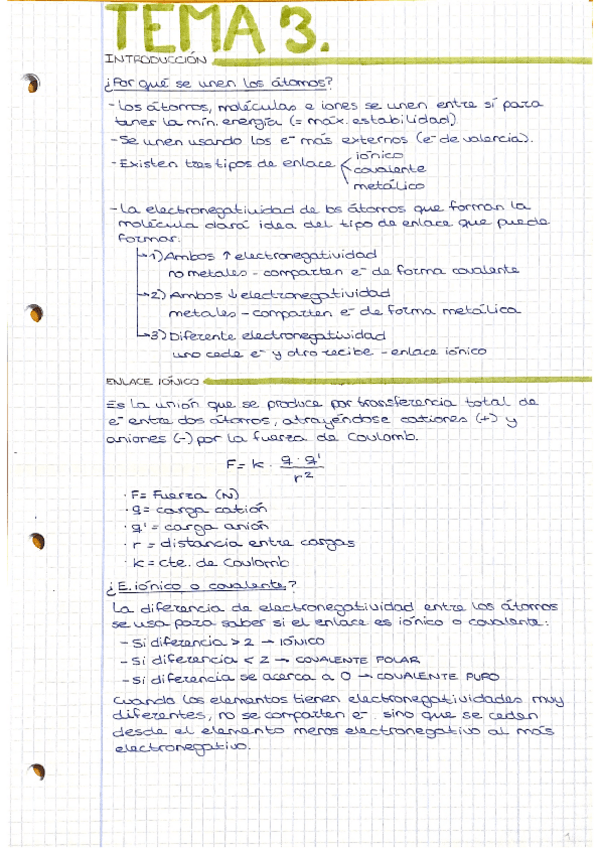 TEMA 3.
INTRODUCCIÓN
¿Por qué se unen los átomos?
- Los átomos, moléculas e iones se unen entre sí para
tener la mín. energía (= máx. estabilidad)
- Se unen usando los e⁻ más externos (e⁻ de valencia).
- Existen tres tipos de enlace
iónico
covalente
metálico
- La electronegatividad de los átomos que forman la
molécula dará idea del tipo de enlace que puede
formar.
1) Ambos ↑ electronegatividad
no metales - comparten e⁻ de forma covalente
2) Ambos ↓ electronegatividad
metales - comparten e⁻ de forma metálica
3) Diferente electronegatividad
uno cede e⁻ y otro recibe - enlace iónico
ENLACE IÓNICO
Es la unión que se produce por transferencia total de
e⁻ entre dos átomos, atrayéndose cationes (+) y
aniones (-) por la fuerza de Coulomb.
F = k · q · q' / r²
· F = Fuerza (N)
· q = carga catión
· q' = carga anión
· r = distancia entre cargas
· k = cte. de Coulomb
¿E. iónico o covalente?
La diferencia de electronegatividad entre los átomos
se usa para saber si el enlace es iónico o covalente:
- Si diferencia > 2 → IÓNICO
- Si diferencia < 2 → COVALENTE POLAR
- Si diferencia se acerca a 0 → COVALENTE PURO
Cuando los elementos tienen electronegatividades muy
diferentes, no se comparten e⁻ sino que se ceden
desde el elemento menos electronegativo al más
electronegativo.
1